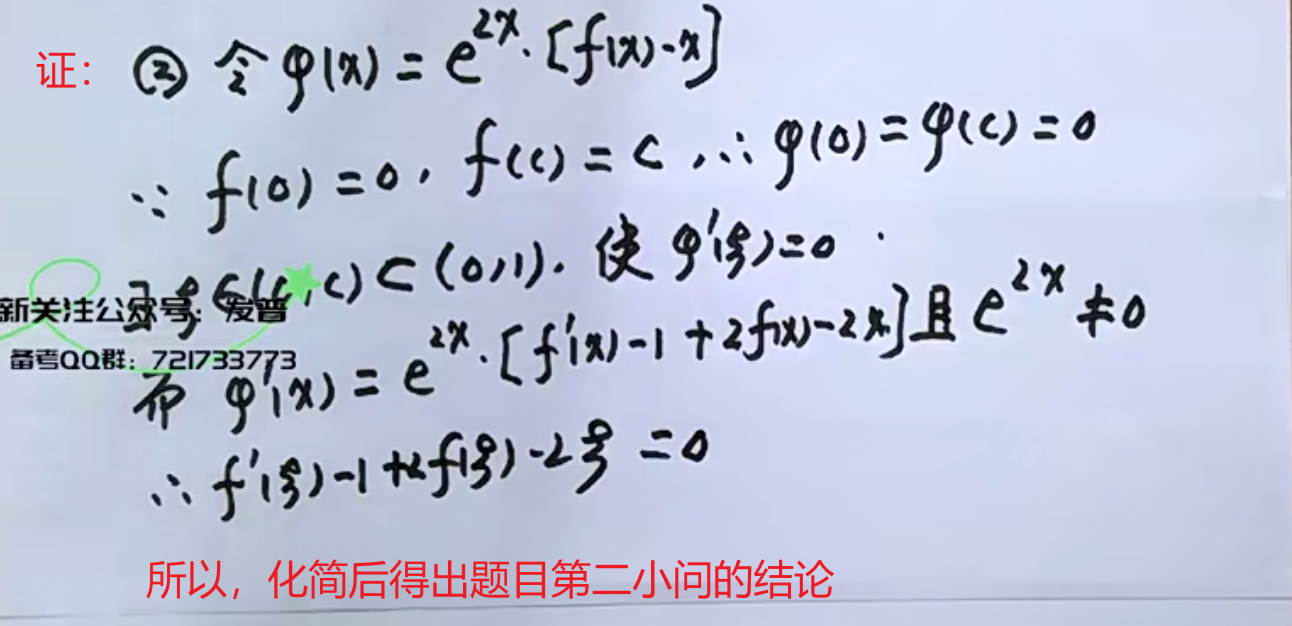 证：② 令 φ(x) = e^{2x}·[f(x)-x]
∵ f(0)=0, f(c)=c, ∴ φ(0)=φ(c)=0
∃ξ∈(0,c)⊂(0,1). 使 φ'(ξ)=0
新关注公众号：发普
备考QQ群：721733773
而 φ'(x) = e^{2x}·[f'(x)-1+2f(x)-2x]且 e^{2x}≠0
∴ f'(ξ)-1+2f(ξ)-2ξ=0
所以，化简后得出题目第二小问的结论